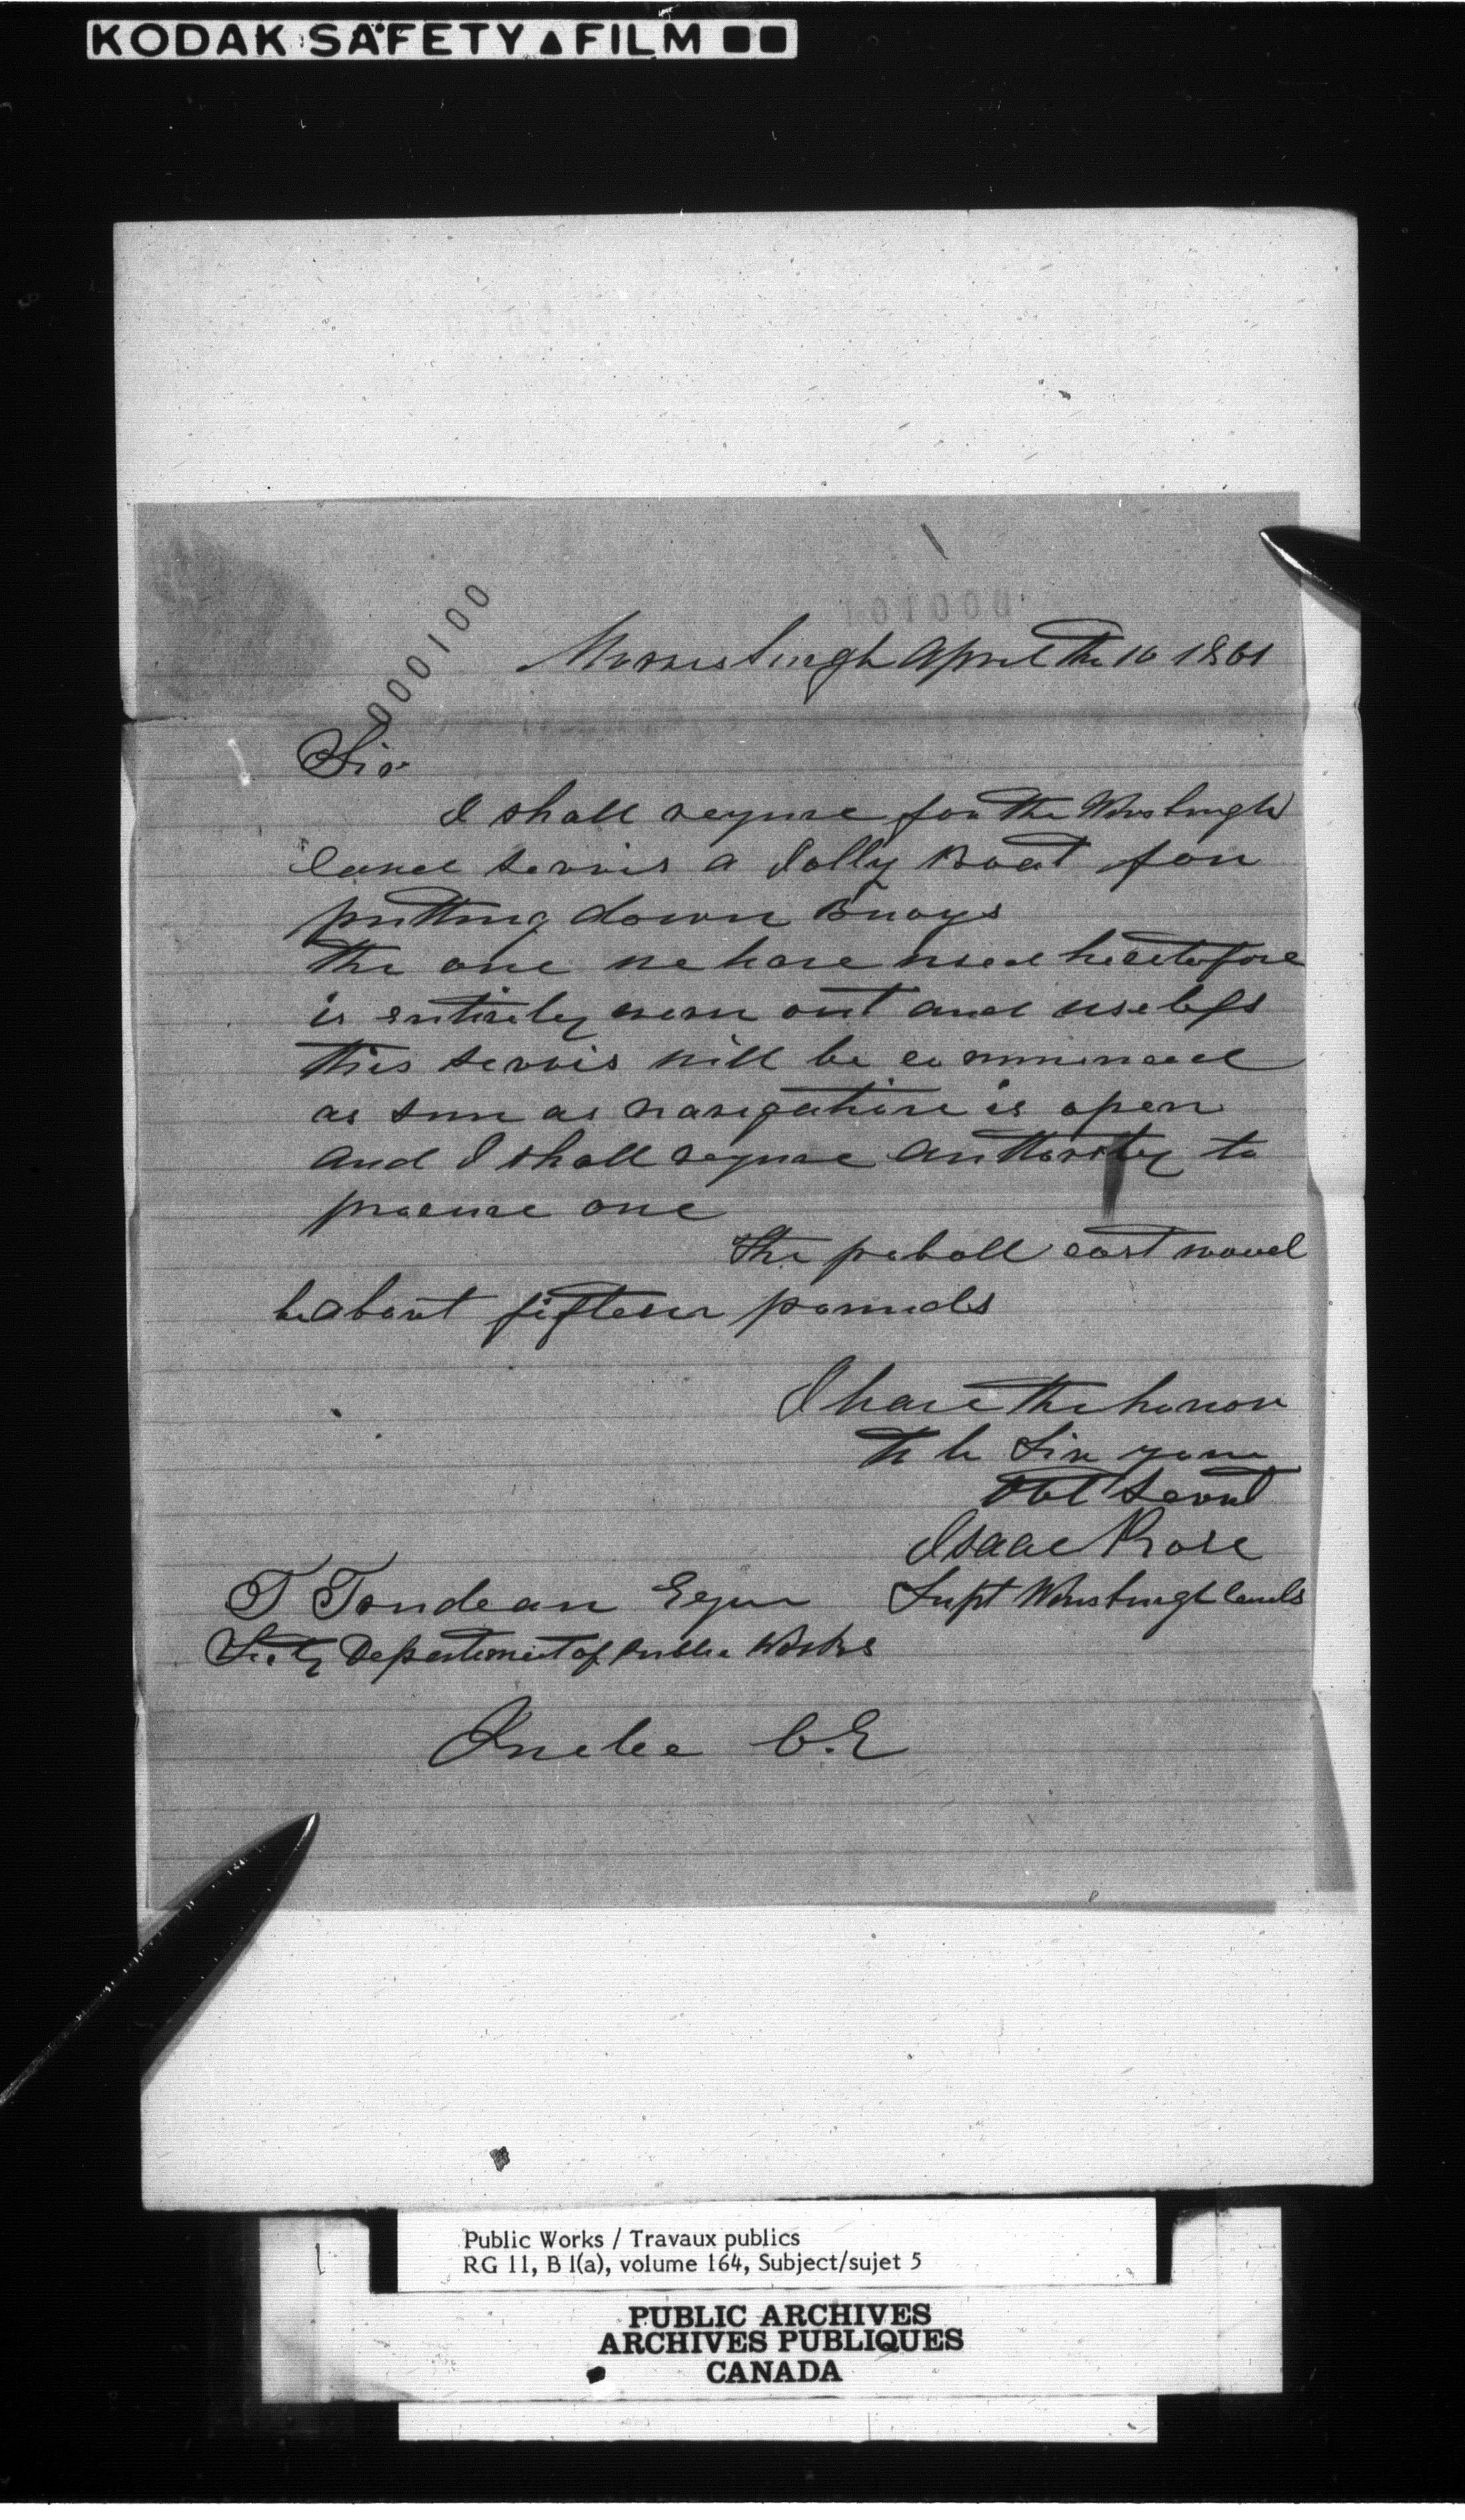 KODAK SAFETY ▲ FILM ■■
000100
000101
Morrisburgh April the 10 1861
Sir
I shall requre for the Wmsburgh
Canal servis a Jolly Boat for
putting down Buoys
the one we have used heretofore
is entirely worn out and useless
this servis will be commenced
as sune as navigatione is open
and I shall requre authority to
procure one
The proball cost would
be about fifteen pounds
I have the honor
to be Sir your
Obt Servt
Isaac Rose
Supt Wmsburgh Canals
T Trudeau Equr
Secty Department of Public Works
Quebec C.E
Public Works / Travaux publics
RG 11, B 1(a), volume 164, Subject/sujet 5
PUBLIC ARCHIVES
ARCHIVES PUBLIQUES
CANADA